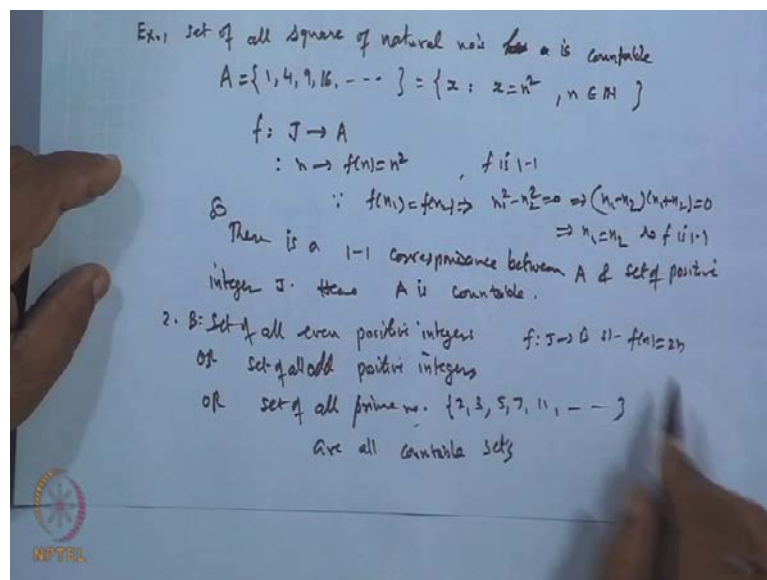 Ex.1 Set of all square of natural no's is countable
A = {1, 4, 9, 16, ---- } = {x : x = n², n ∈ N }
f : J → A
: n → f(n) = n² , f is 1-1
∵ f(n₁) = f(n₂) ⇒ n₁² - n₂² = 0 ⇒ (n₁-n₂)(n₁+n₂) = 0
⇒ n₁ = n₂ so f is 1-1
So There is a 1-1 correspondence between A & set of positive
integer J. Hence A is countable.
2. B: Set of all even positive integers f: J → B s.t. f(n) = 2n
OR set of all odd positive integers
OR set of all prime no. {2, 3, 5, 7, 11, ---- }
are all countable sets
NPTEL